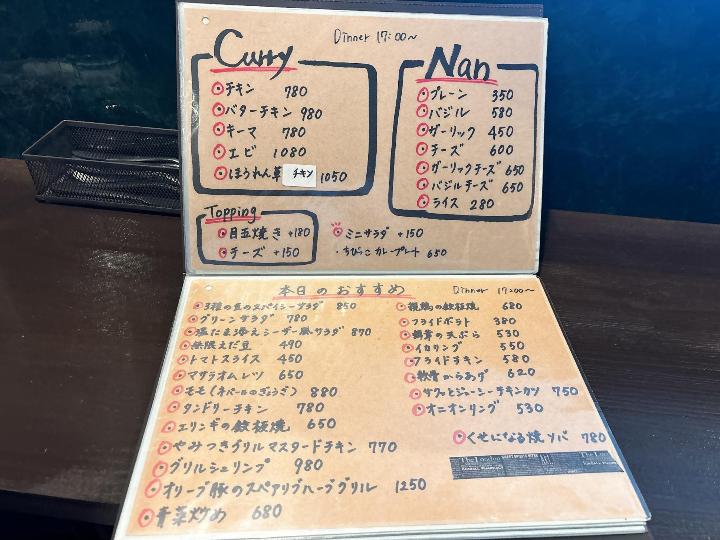 Dinner 17:00〜
Curry
チキン 780
バターチキン 980
キーマ 780
エビ 1080
ほうれん草 チキン 1050
Nan
プレーン 350
バジル 580
ガーリック 450
チーズ 600
ガーリックチーズ 650
バジルチーズ 650
ライス 280
Topping
目玉焼き +180
チーズ +150
ミニサラダ +150
・ちびっこカレープレート 650
本日のおすすめ
Dinner 17:00〜
3種の豆のスパイシーサラダ 850
グリーンサラダ 780
温たま添えシーザー風サラダ 870
無限えだ豆 490
トマトスライス 450
マサラオムレツ 650
モモ(ネパールのぎょうざ) 880
タンドリーチキン 780
エリンギの鉄板焼 650
やみつきグリルマスタードチキン 770
グリルシュリンプ 980
オリーブ豚のスペアリブハーブグリル 1250
青菜炒め 680
親鶏の鉄板焼 680
フライドポテト 380
の天ぷら 530
イカリング 550
フライドチキン 580
軟骨からあげ 620
サクッとジューシーチキンカツ 750
オニオンリング 530
くせになる焼ソバ 780
The London
The Lon